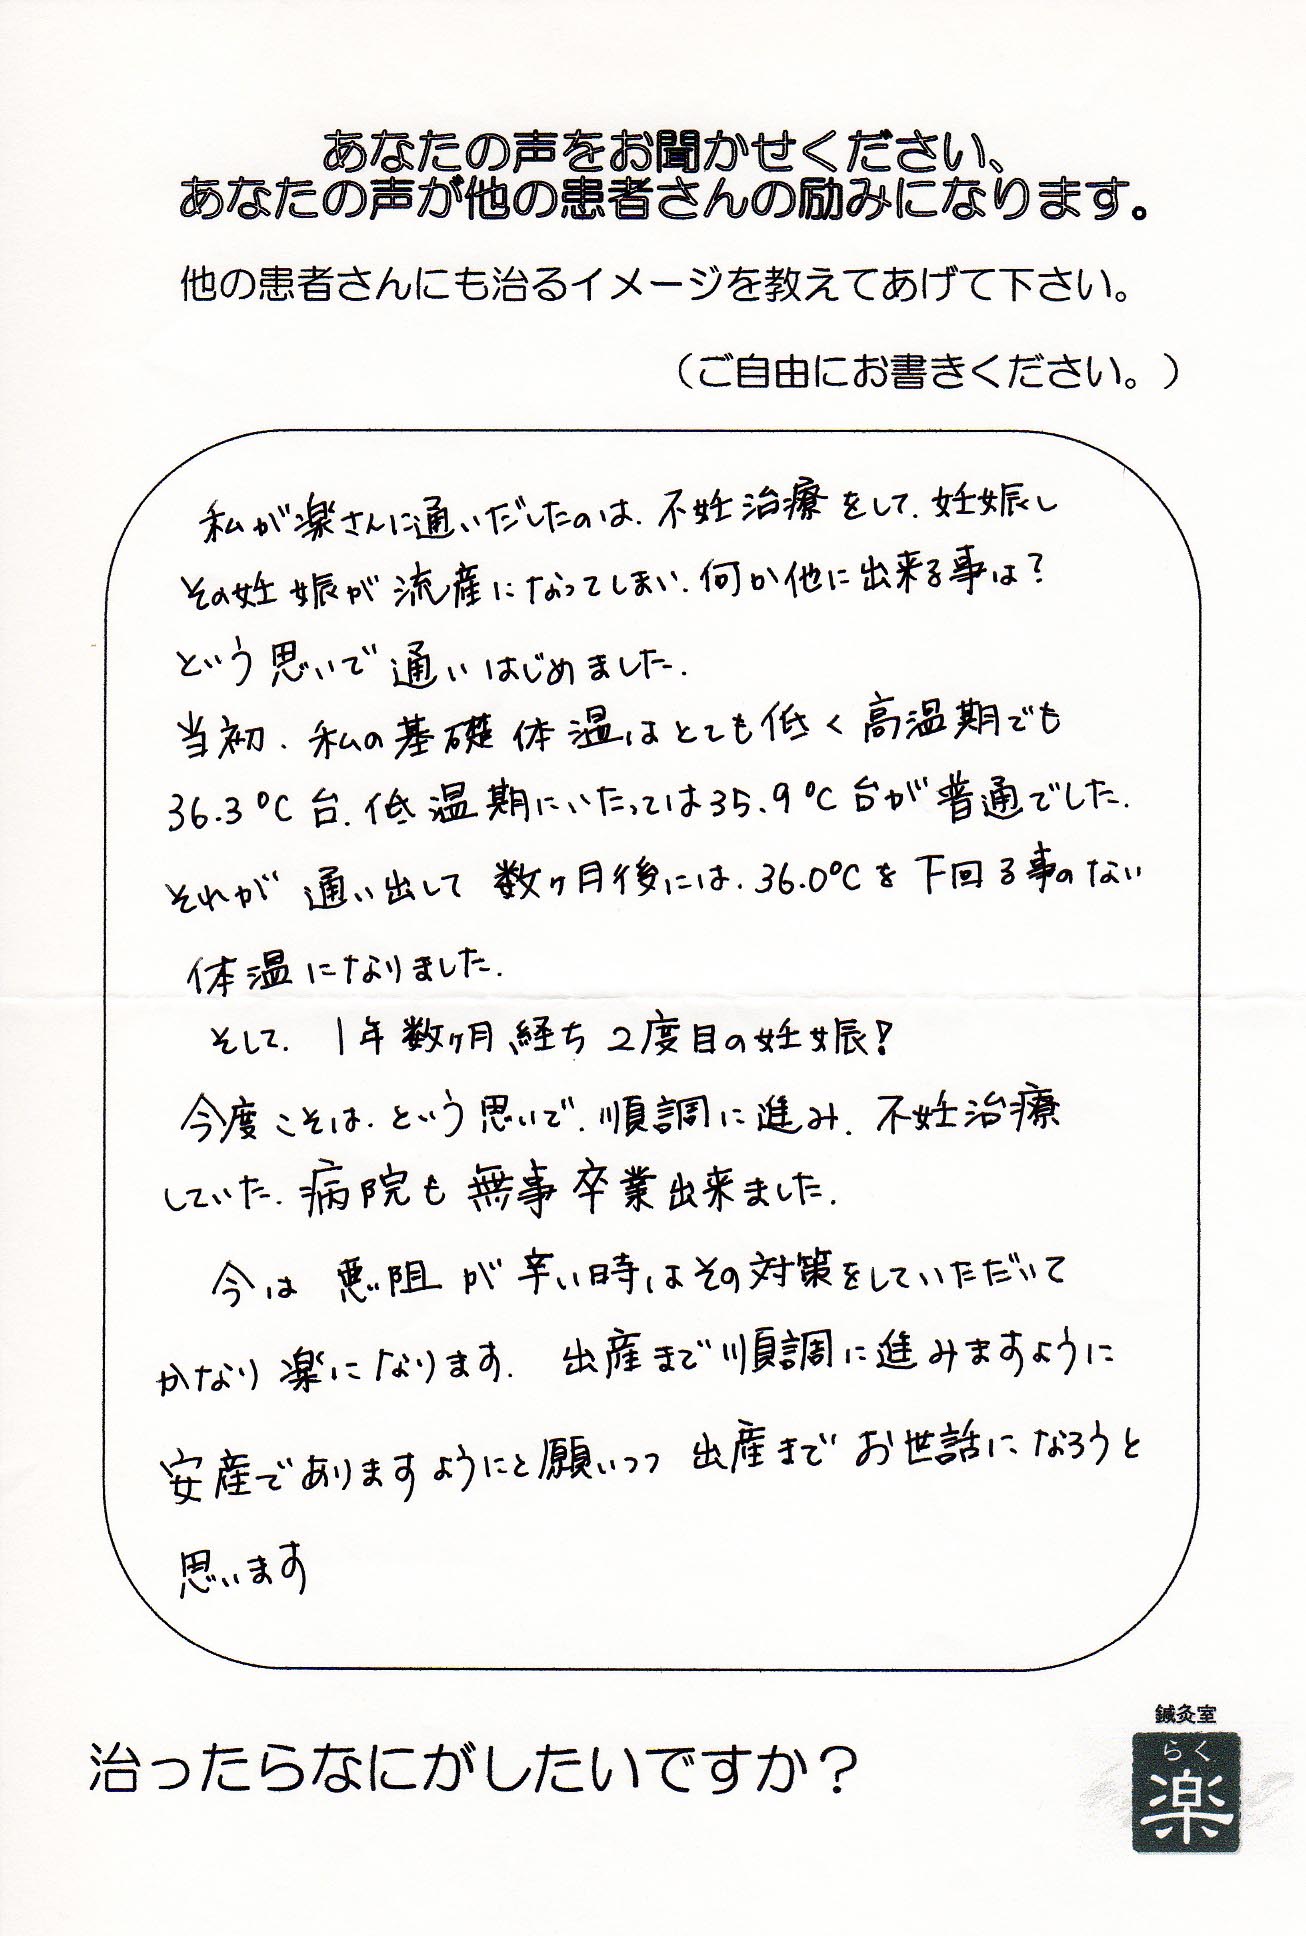 あなたの声をお聞かせください、
あなたの声が他の患者さんの励みになります。
他の患者さんにも治るイメージを教えてあげて下さい。
（ご自由にお書きください。）
私が楽さんに通いだしたのは、不妊治療をして、妊娠し
その妊娠が流産になってしまい、何か他に出来る事は？
という思いで通いはじめました。
当初、私の基礎体温はとても低く高温期でも
36.3℃台、低温期にいたっては35.9℃台が普通でした。
それが通い出して数ヶ月後には、36.0℃を下回る事のない
体温になりました。
そして、1年数ヶ月経ち2度目の妊娠！
今度こそは、という思いで、順調に進み、不妊治療
していた、病院も無事卒業出来ました。
今は悪阻が辛い時はその対策をしていただいて
かなり楽になります。出産まで順調に進みますように
安産でありますようにと願いつつ出産までお世話になろうと
思います
治ったらなにがしたいですか？
鍼灸室
らく
楽